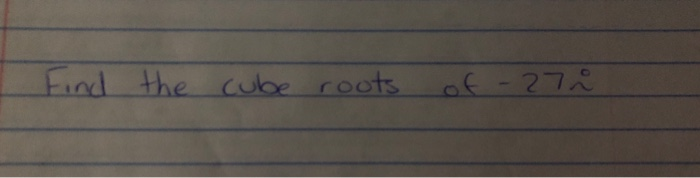 Find the cube roots of -27i